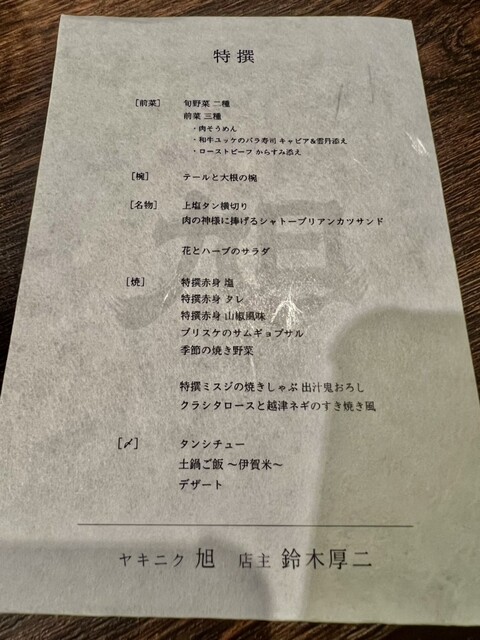 特撰
[前菜] 旬野菜 二種
前菜 三種
・肉そうめん
・和牛ユッケのバラ寿司 キャビア&雲丹添え
・ローストビーフ からすみ添え
[椀] テールと大根の椀
[名物] 上塩タン横切り
肉の神様に捧げるシャトーブリアンカツサンド
花とハーブのサラダ
[焼] 特撰赤身 塩
特撰赤身 タレ
特撰赤身 山椒風味
ブリスケのサムギョプサル
季節の焼き野菜
特撰ミスジの焼きしゃぶ 出汁鬼おろし
クラシタロースと越津ネギのすき焼き風
[〆] タンシチュー
土鍋ご飯 ～伊賀米～
デザート
ヤキニク 旭 店主 鈴木厚二